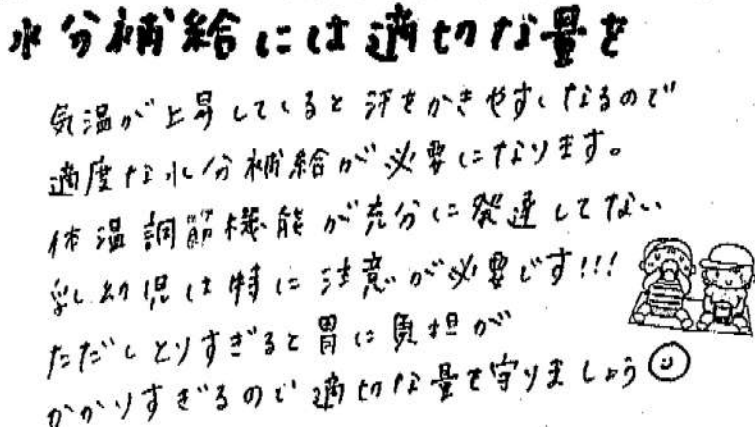 水分補給には適切な量を
気温が上昇してくると汗をかきやすくなるので
適度な水分補給が必要になります。
体温調節機能が充分に発達してない
乳幼児は特に注意が必要です!!!
ただしとりすぎると胃に負担が
かかりすぎるので適切な量を守りましょう